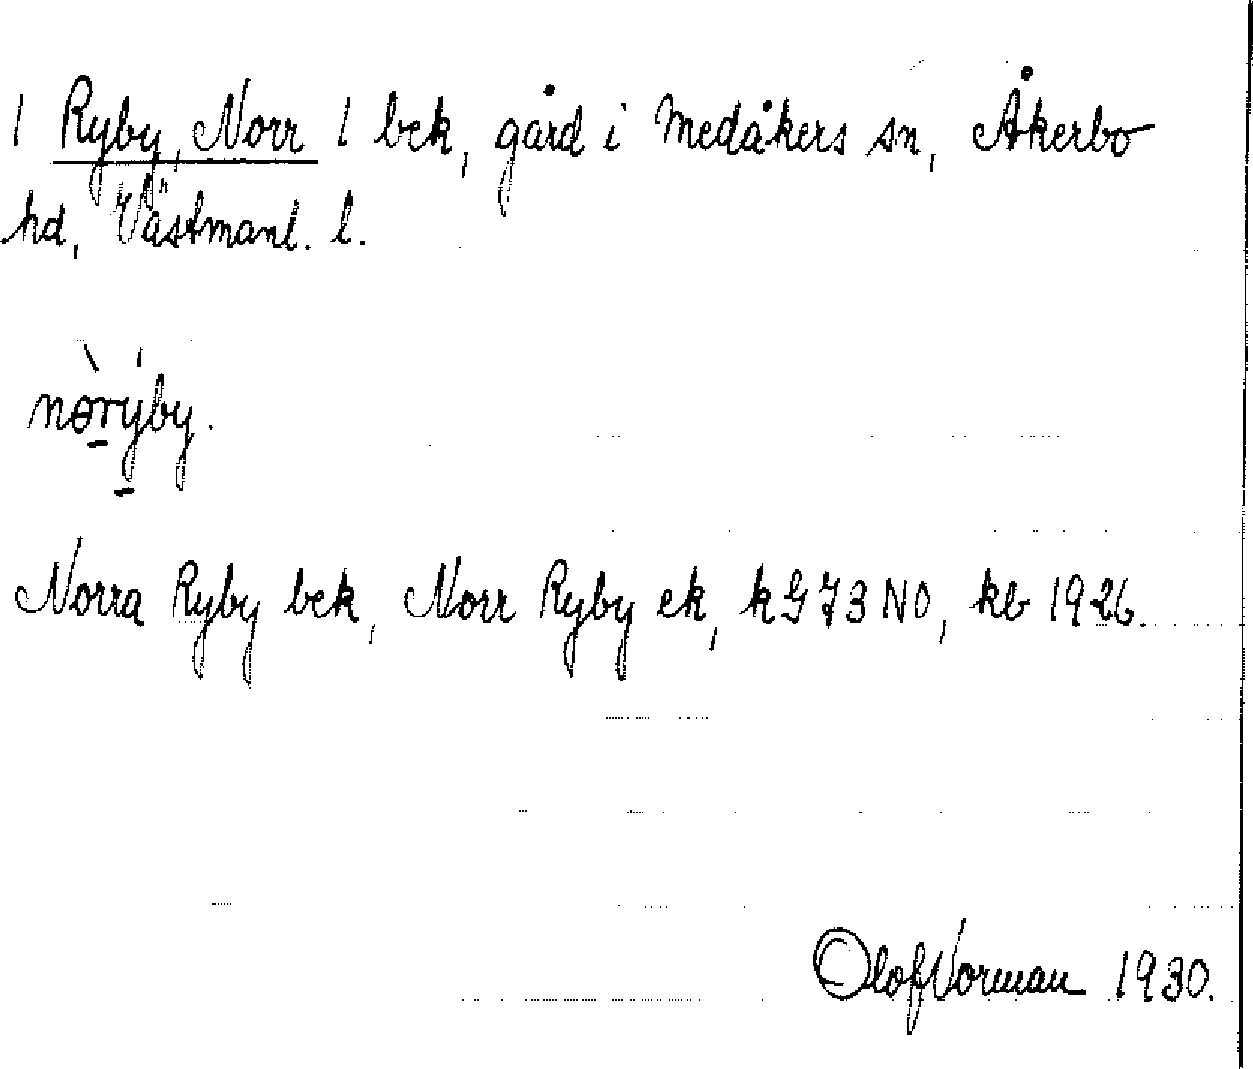 1 Ryby, Norr 1 bek, gård i Medåkers sn, Åkerbo
hd, Västmanl. l.
nørýby.
Norra Ryby bek, Norr Ryby ek, kG73NO, kb 1926.
Olof Norman 1930.